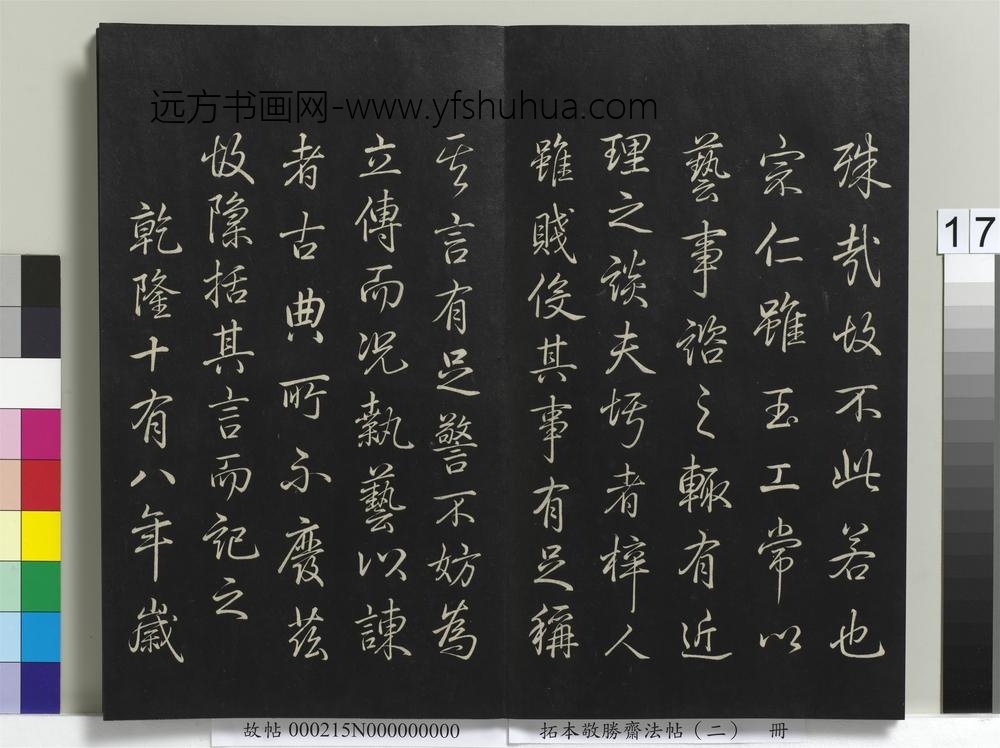 远方书画网-www.yfshuhua.com
殊哉故不此若也
宗仁雖玉工常以
藝事諮之輒有近
理之談夫圬者梓人
雖賤役其事有足稱
其言有足警不妨為
立傳而況執藝以諫
者古典所不廢茲
故隱括其言而記之
乾隆十有八年歲
17
故帖 000215N000000000
拓本敬勝齋法帖（二） 冊